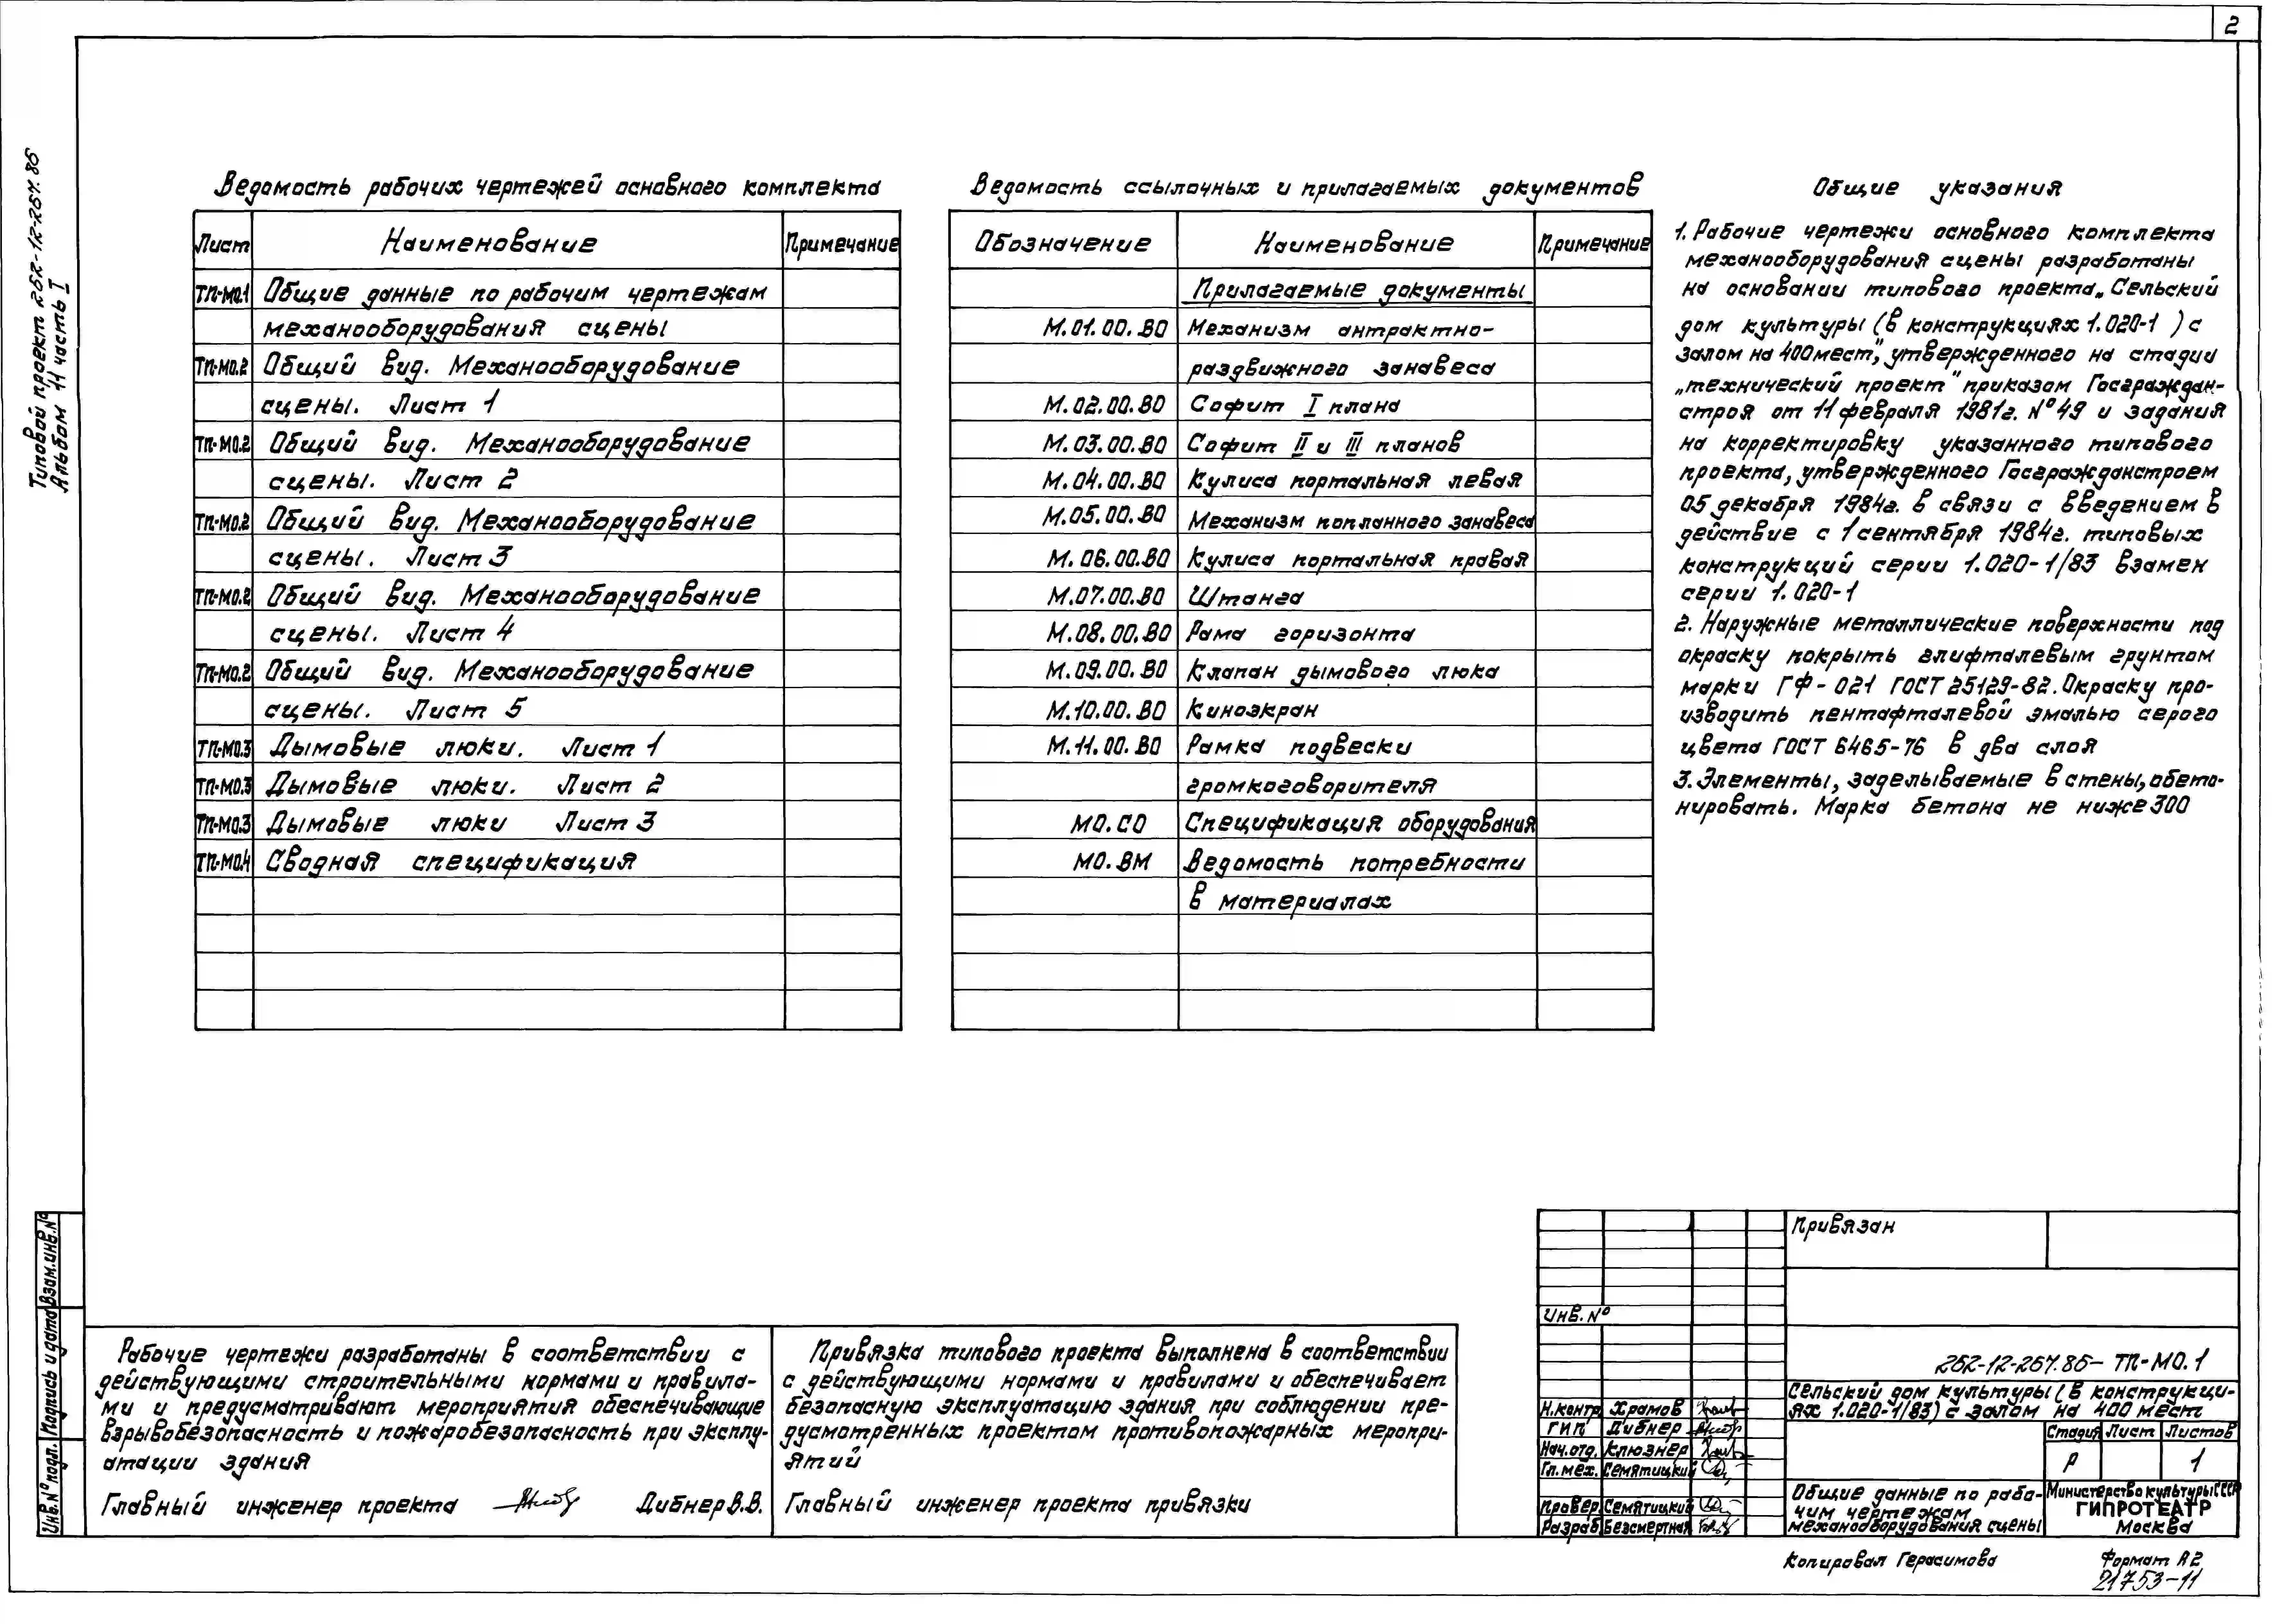 2
Типовой проект 262-12-267.86
Альбом 11 часть I
Ведомость рабочих чертежей основного комплекта
Лист Наименование Примечание
ТП-МО.1 Общие данные по рабочим чертежам
механооборудования сцены
ТП-МО.2 Общий вид. Механооборудование
сцены. Лист 1
ТП-МО.2 Общий вид. Механооборудование
сцены. Лист 2
ТП-МО.2 Общий вид. Механооборудование
сцены. Лист 3
ТП-МО.2 Общий вид. Механооборудование
сцены. Лист 4
ТП-МО.2 Общий вид. Механооборудование
сцены. Лист 5
ТП-МО.3 Дымовые люки. Лист 1
ТП-МО.3 Дымовые люки. Лист 2
ТП-МО.3 Дымовые люки Лист 3
ТП-МО.4 Сводная спецификация
Ведомость ссылочных и прилагаемых документов
Обозначение Наименование Примечание
Прилагаемые документы
М.01.00.ВО Механизм антрактно-
раздвижного занавеса
М.02.00.ВО Софит I плана
М.03.00.ВО Софит II и III планов
М.04.00.ВО Кулиса портальная левая
М.05.00.ВО Механизм попланного занавеса
М.06.00.ВО Кулиса портальная правая
М.07.00.ВО Штанга
М.08.00.ВО Рама горизонта
М.09.00.ВО Клапан дымового люка
М.10.00.ВО Киноэкран
М.11.00.ВО Рамка подвески
громкоговорителя
МО.СО Спецификация оборудования
МО.ВМ Ведомость потребности
в материалах
Общие указания
1. Рабочие чертежи основного комплекта
механооборудования сцены разработаны
на основании типового проекта „Сельский
дом культуры (в конструкциях 1.020-1 ) с
залом на 400 мест", утвержденного на стадии
„технический проект" приказом Госграждан-
строя от 11 февраля 1981г. №49 и задания
на корректировку указанного типового
проекта, утвержденного Госгражданстроем
05 декабря 1984г. в связи с введением в
действие с 1 сентября 1984г. типовых
конструкций серии 1.020-1/83 взамен
серии 1.020-1
2. Наружные металлические поверхности под
окраску покрыть глифталевым грунтом
марки ГФ-021 ГОСТ 25129-82. Окраску про-
изводить пентафталевой эмалью серого
цвета ГОСТ 6465-76 в два слоя
3. Элементы, заделываемые в стены, обето-
нировать. Марка бетона не ниже 300
Инв.№ подл. Подпись и дата Взам.инв.№
Рабочие чертежи разработаны в соответствии с
действующими строительными нормами и правила-
ми и предусматривают мероприятия обеспечивающие
взрывобезопасность и пожаробезопасность при эксплу-
атации здания
Главный инженер проекта Дибнер В.В.
Привязка типового проекта выполнена в соответствии
с действующими нормами и правилами и обеспечивает
безопасную эксплуатацию здания при соблюдении пре-
дусмотренных проектом противопожарных меропри-
ятий
Главный инженер проекта привязки
Привязан
Инв.№
262-12-267.86- ТП-МО.1
Сельский дом культуры (в конструкци-
ях 1.020-1/83) с залом на 400 мест
Н.контр. Храмов
ГИП Дибнер
Нач.отд. Клюзнер
Гл.мех. Семятицкий
Провер. Семятицкий
Разраб. Безсмертная
Стадия Лист Листов
Р 1
Общие данные по рабо-
чим чертежам
механооборудования сцены
Министерство культуры СССР
ГИПРОТЕАТР
Москва
Копировал Герасимова
Формат А2
21753-11